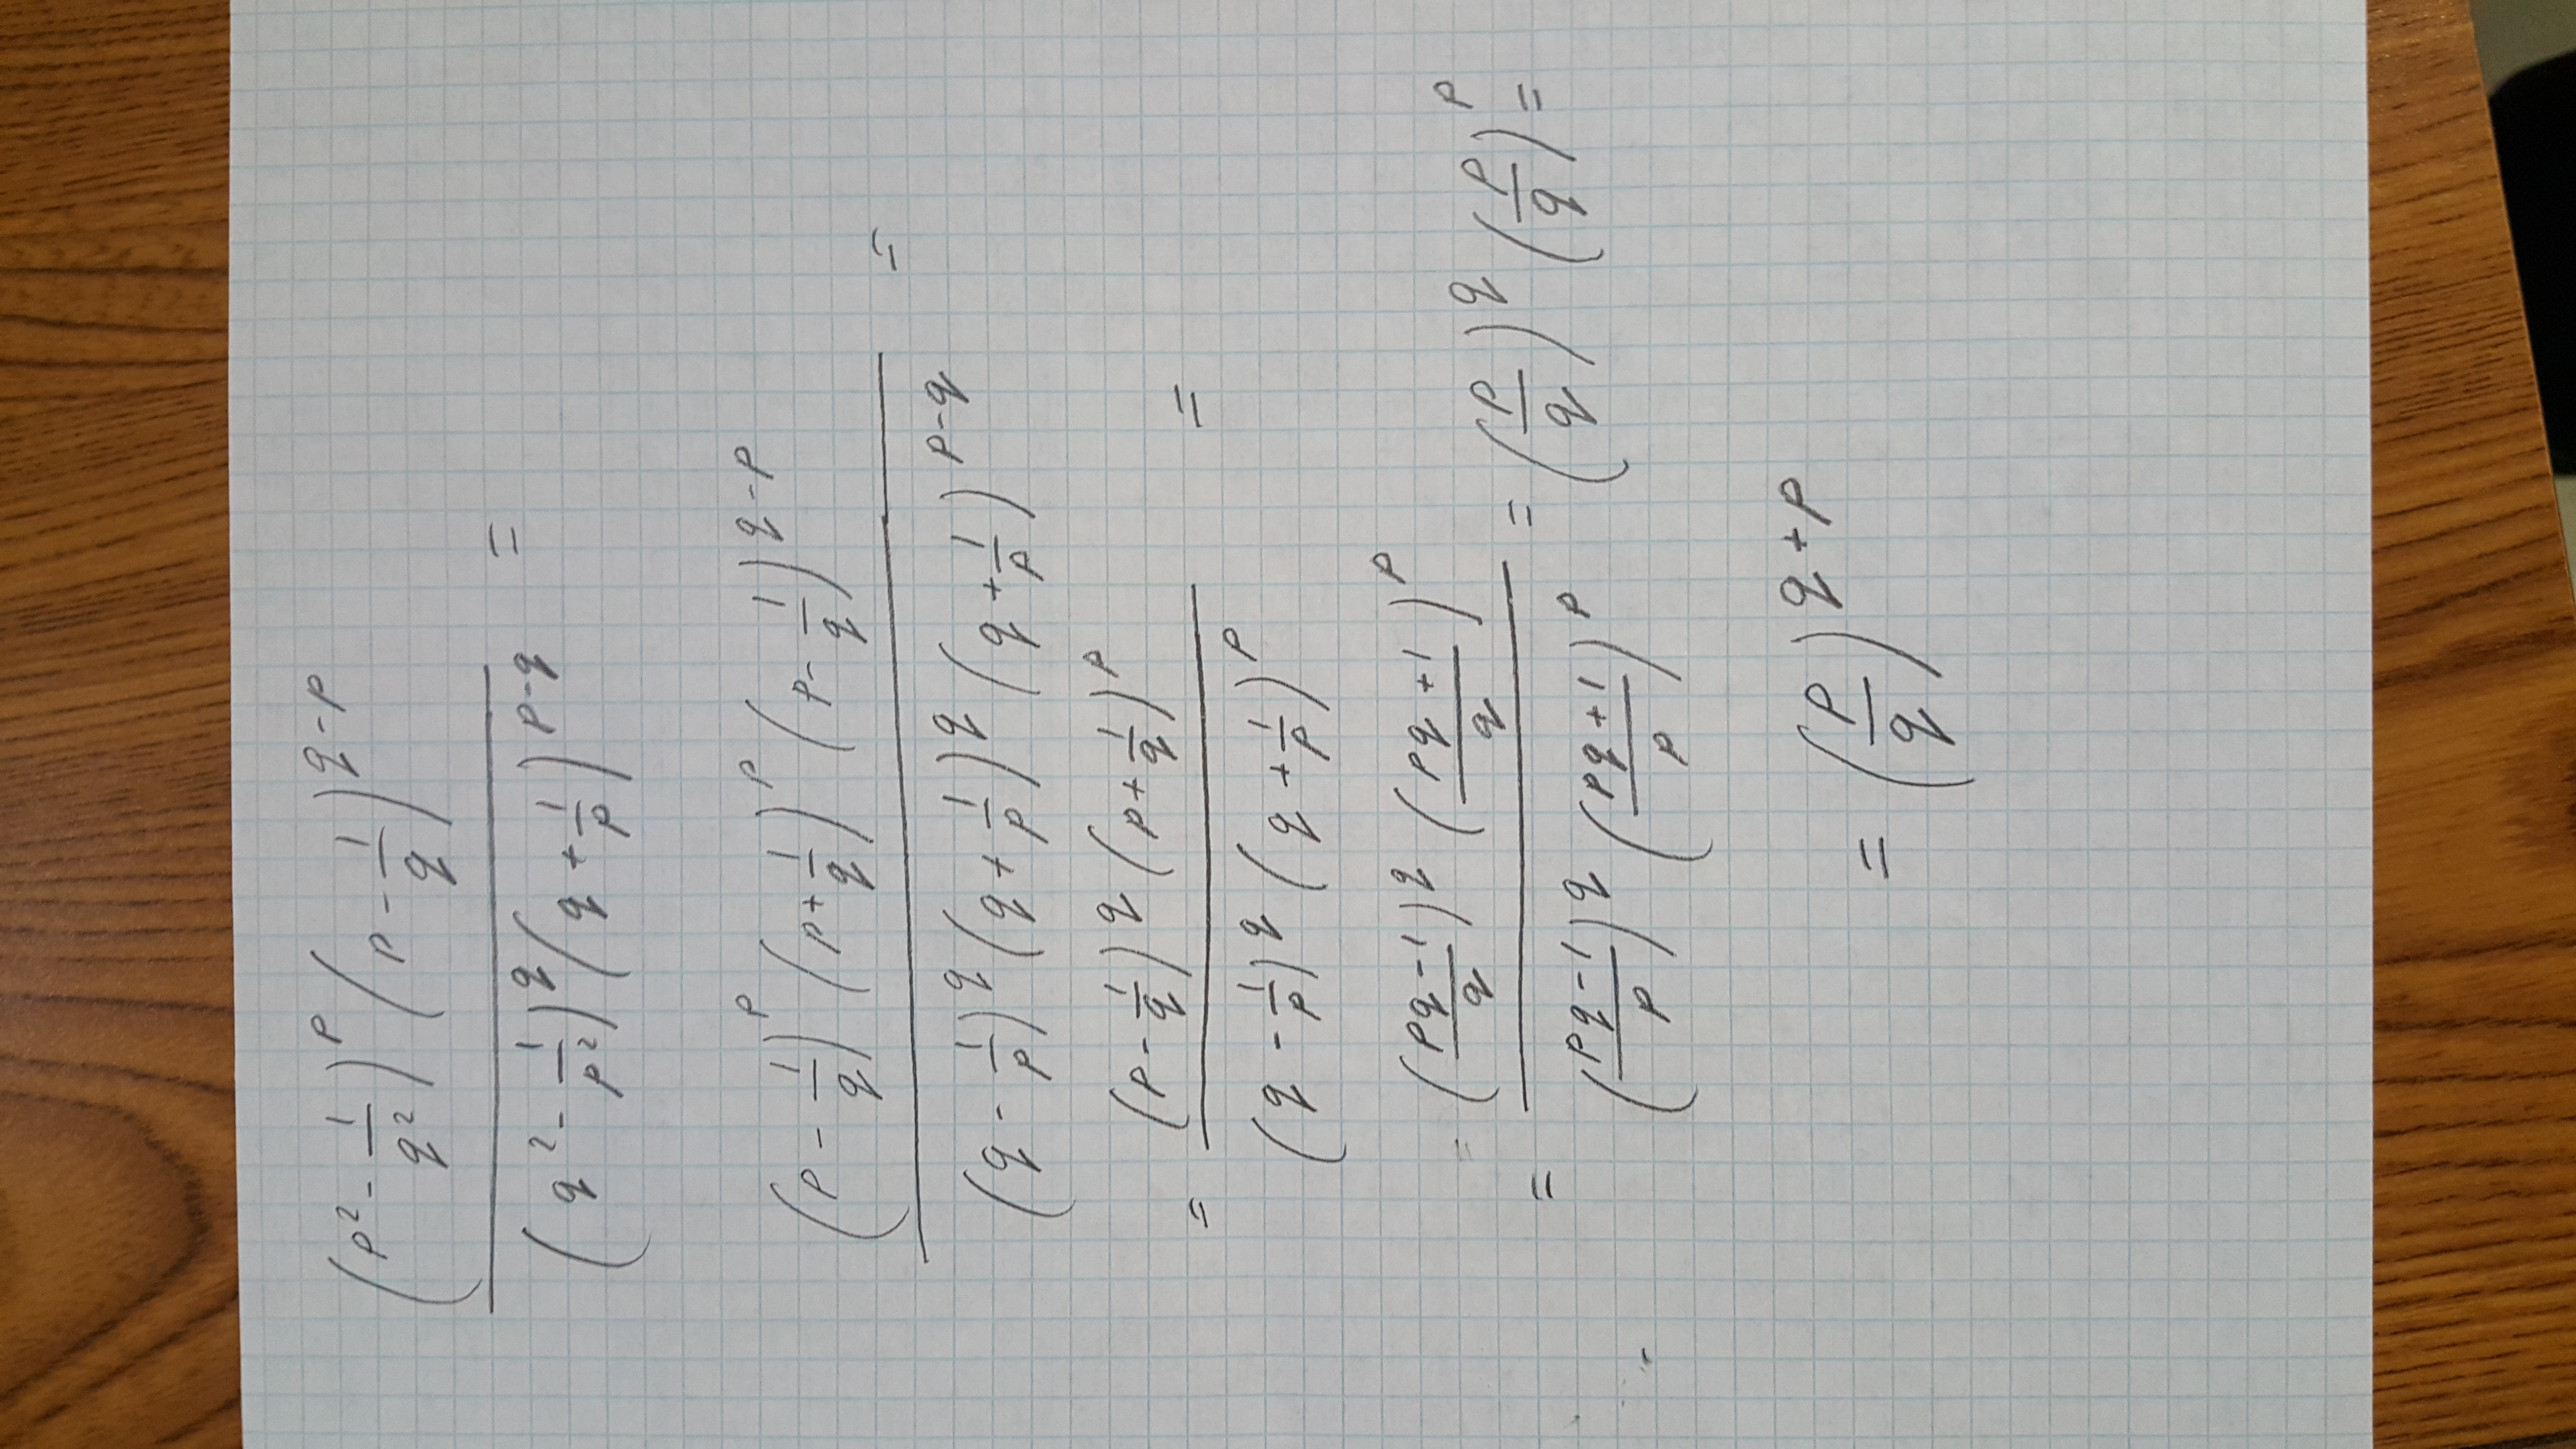 \frac{(p^2 - \frac{1}{q^2})^p (p - \frac{1}{q})^{q-p}}{(q^2 - \frac{1}{p^2})^q (q + \frac{1}{p})^{p-q}} =
\frac{(p - \frac{1}{q})^p (p + \frac{1}{q})^p (p - \frac{1}{q})^{q-p}}{(q - \frac{1}{p})^q (q + \frac{1}{p})^q (q + \frac{1}{p})^{p-q}} =
= \frac{(p - \frac{1}{q})^q (p + \frac{1}{q})^p}{(q - \frac{1}{p})^q (q + \frac{1}{p})^p} =
= \frac{(\frac{pq-1}{q})^q (\frac{pq+1}{q})^p}{(\frac{pq-1}{p})^q (\frac{pq+1}{p})^p} = (\frac{p}{q})^q (\frac{p}{q})^p =
= (\frac{p}{q})^{q+p}